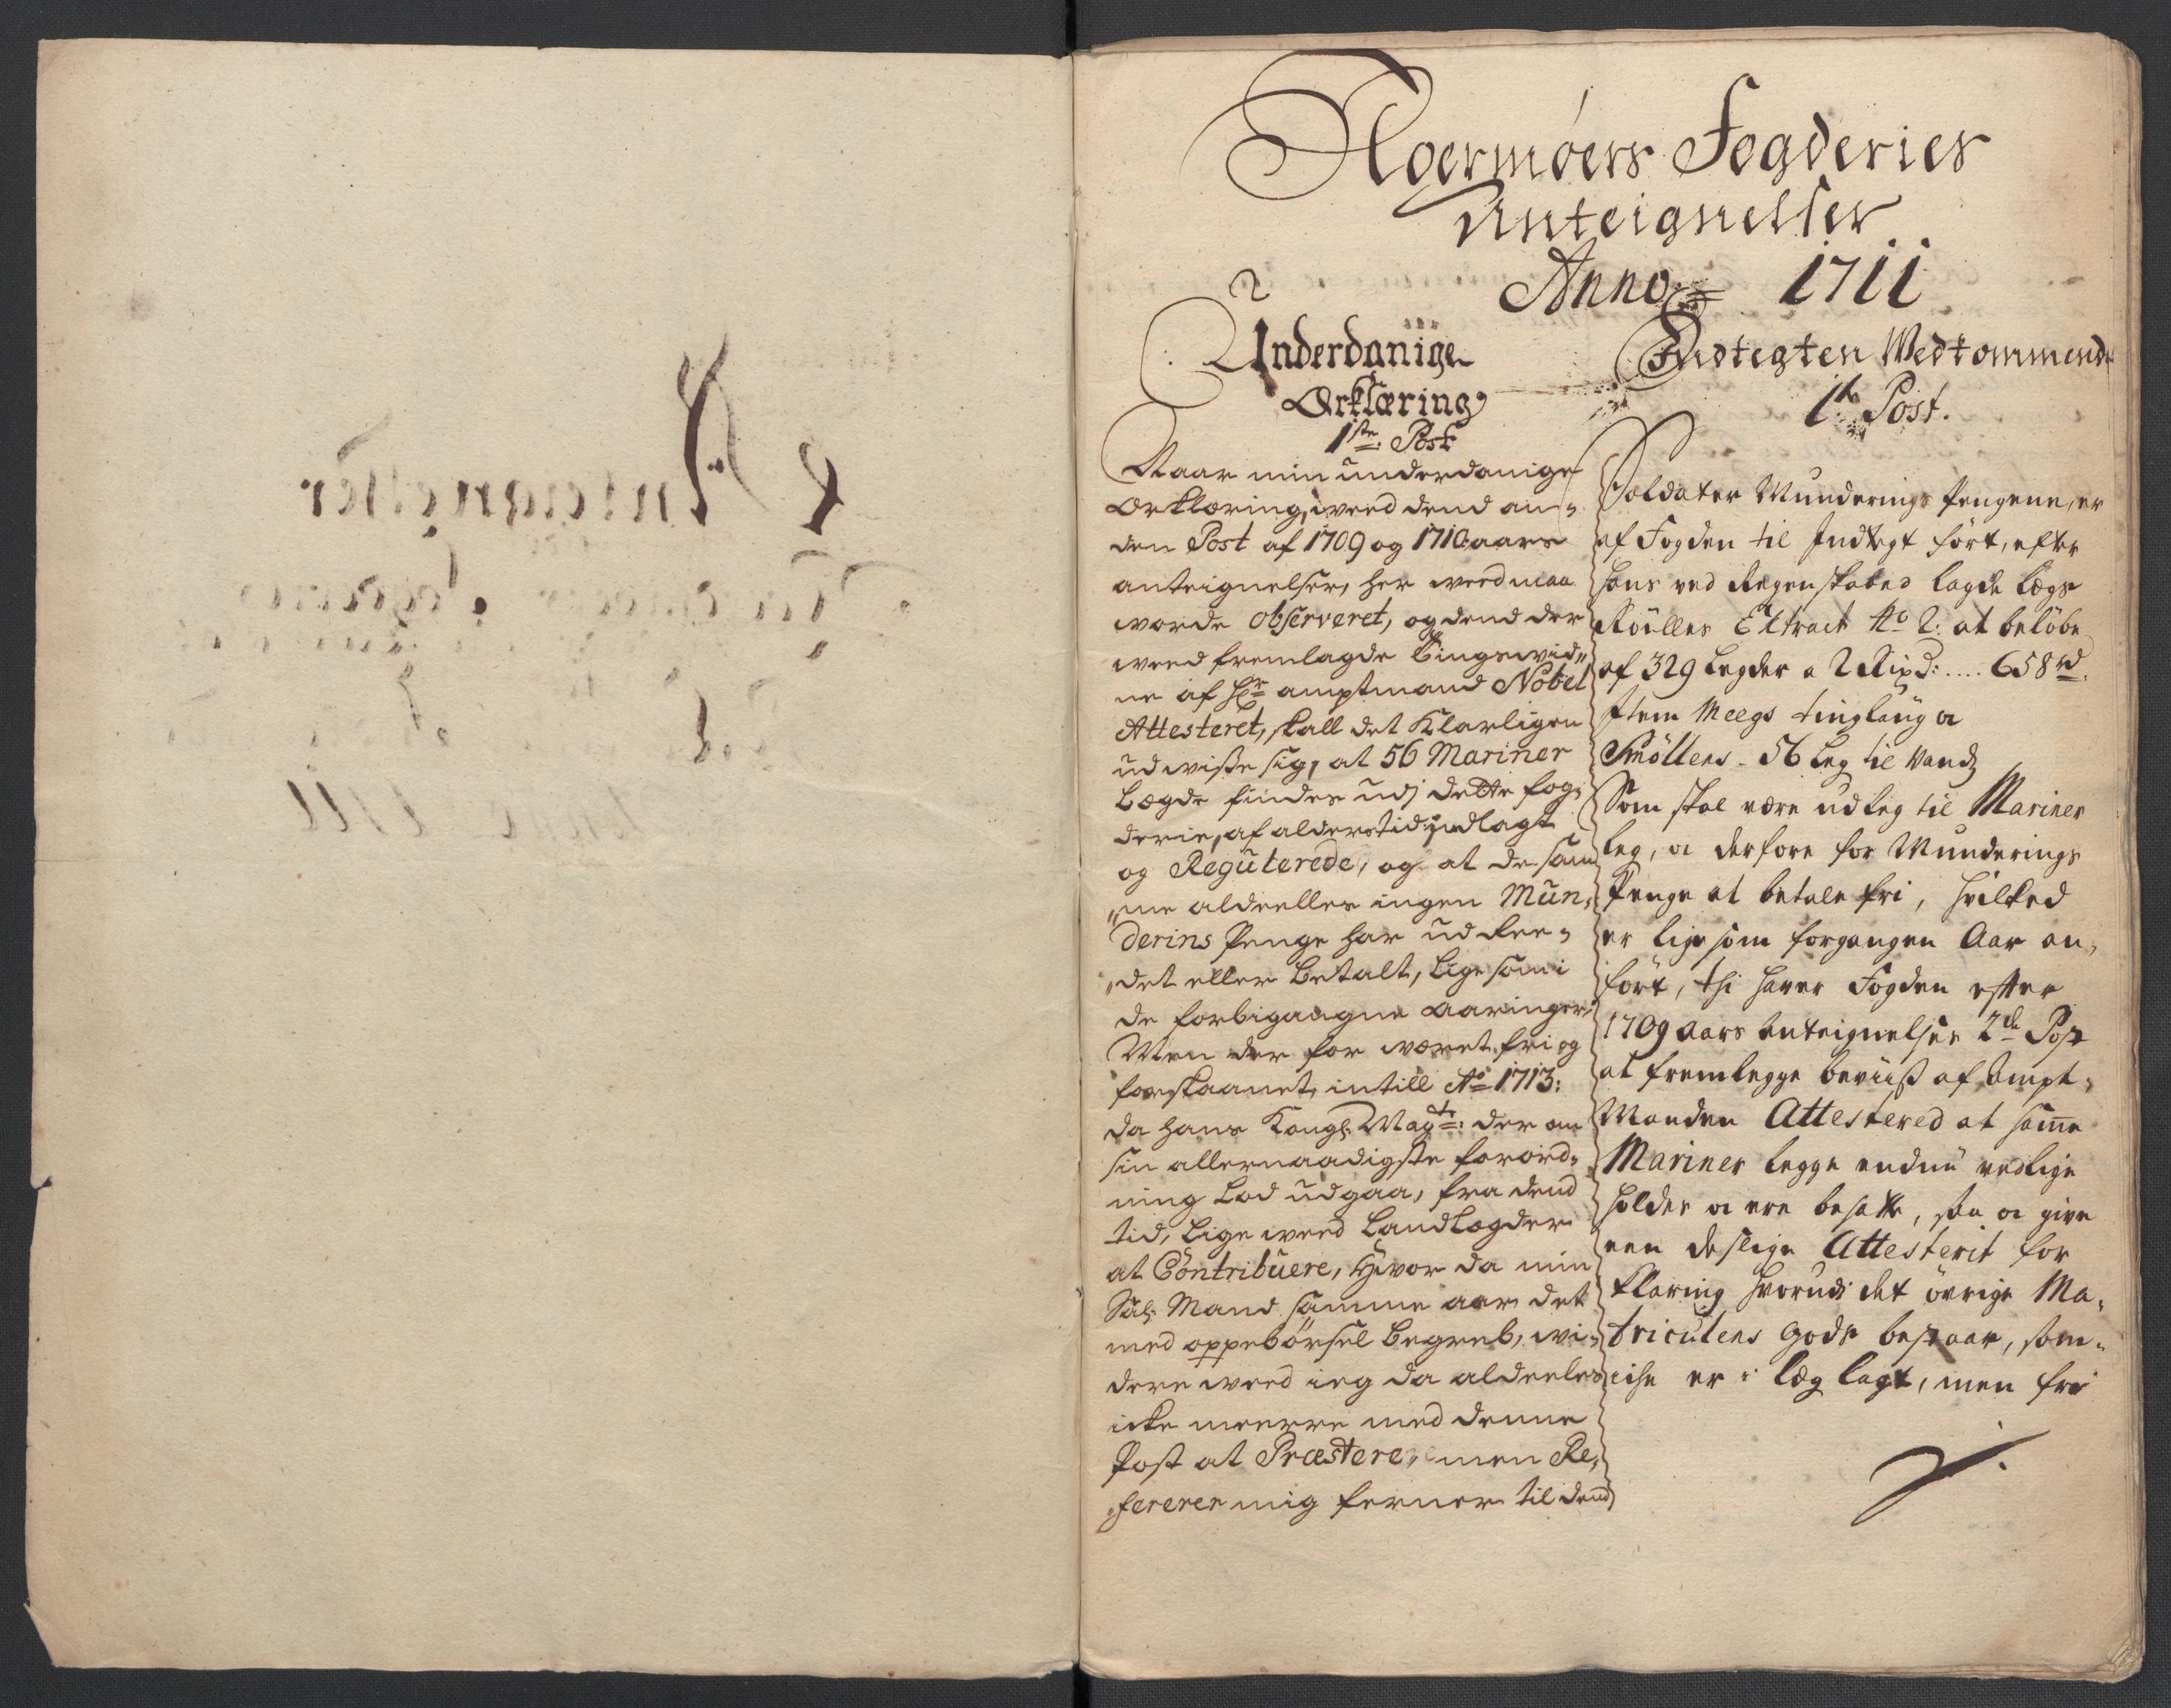 Noermøers Fogderies
Anteignelser
Anno 1711
Underdanige
Erklæring
1ste: Post
Naar min underdanige
Erklæring, weed dend an=
den Post af 1709 og 1710 aars
anteignelser, her weed maa
worde observeret, og dend der
weed fremlagde tingswid=
ne af Hr amptmand Nobel
Attesteret, skall det Klarligen
udwisse sig, at 56 Mariner
Legde findes udj dette fog=
derie, af alders tid indlagt
og Reguterede, og at de sam
=me aldeelles ingen Mun=
derins Penge har udree=
=det eller betalt, lige som i
de forbigangne aaringer
Men der for wæret fri og
forskaanet, intill Ao 1713:
da hans Kongl: Mayts: der om
sin allernaadigste forord=
ning lod udgaa, fra dend
tid, lige weed Landlægder
at Contribuere, Hwor da min
Sal: Mand samme aar det
med oppebørsel begreb, wi=
dere weed ieg da aldeeles
icke meerre med denne
Post at Præstere, men Re=
=fererer mig ferner til dend
Indtegten Wedkommende
1te Post.
Soldater Munderings Pengene, er
af Fogden til Indtegt ført, efter
hans ved Regenskabed lagde Legs
Roulles Extract No 2: at beløbe
af 329 Legder a 2 Rixd: .... 658 rd
Item Meegs tinglaug og
Smøllens - 56 Leg til Vandz
Som skal være udleg til Mariner
leg, og derfore for Munderings
Penge at betale fri, hvilked
er lige som forgangen Aar an=
ført, thi haver Fogden efter
1709 Aars Anteignelser 2de Post
at fremlegge beviis af Ampt=
Manden Attestered at samme
Mariner legge endnu vedlige
holdes og ere besatte, saa og give
een deslige Attesterit for
klaring hvorudi det øvrige Ma=
triculens gods bestaar, som
iche er i læg lagt, men fri